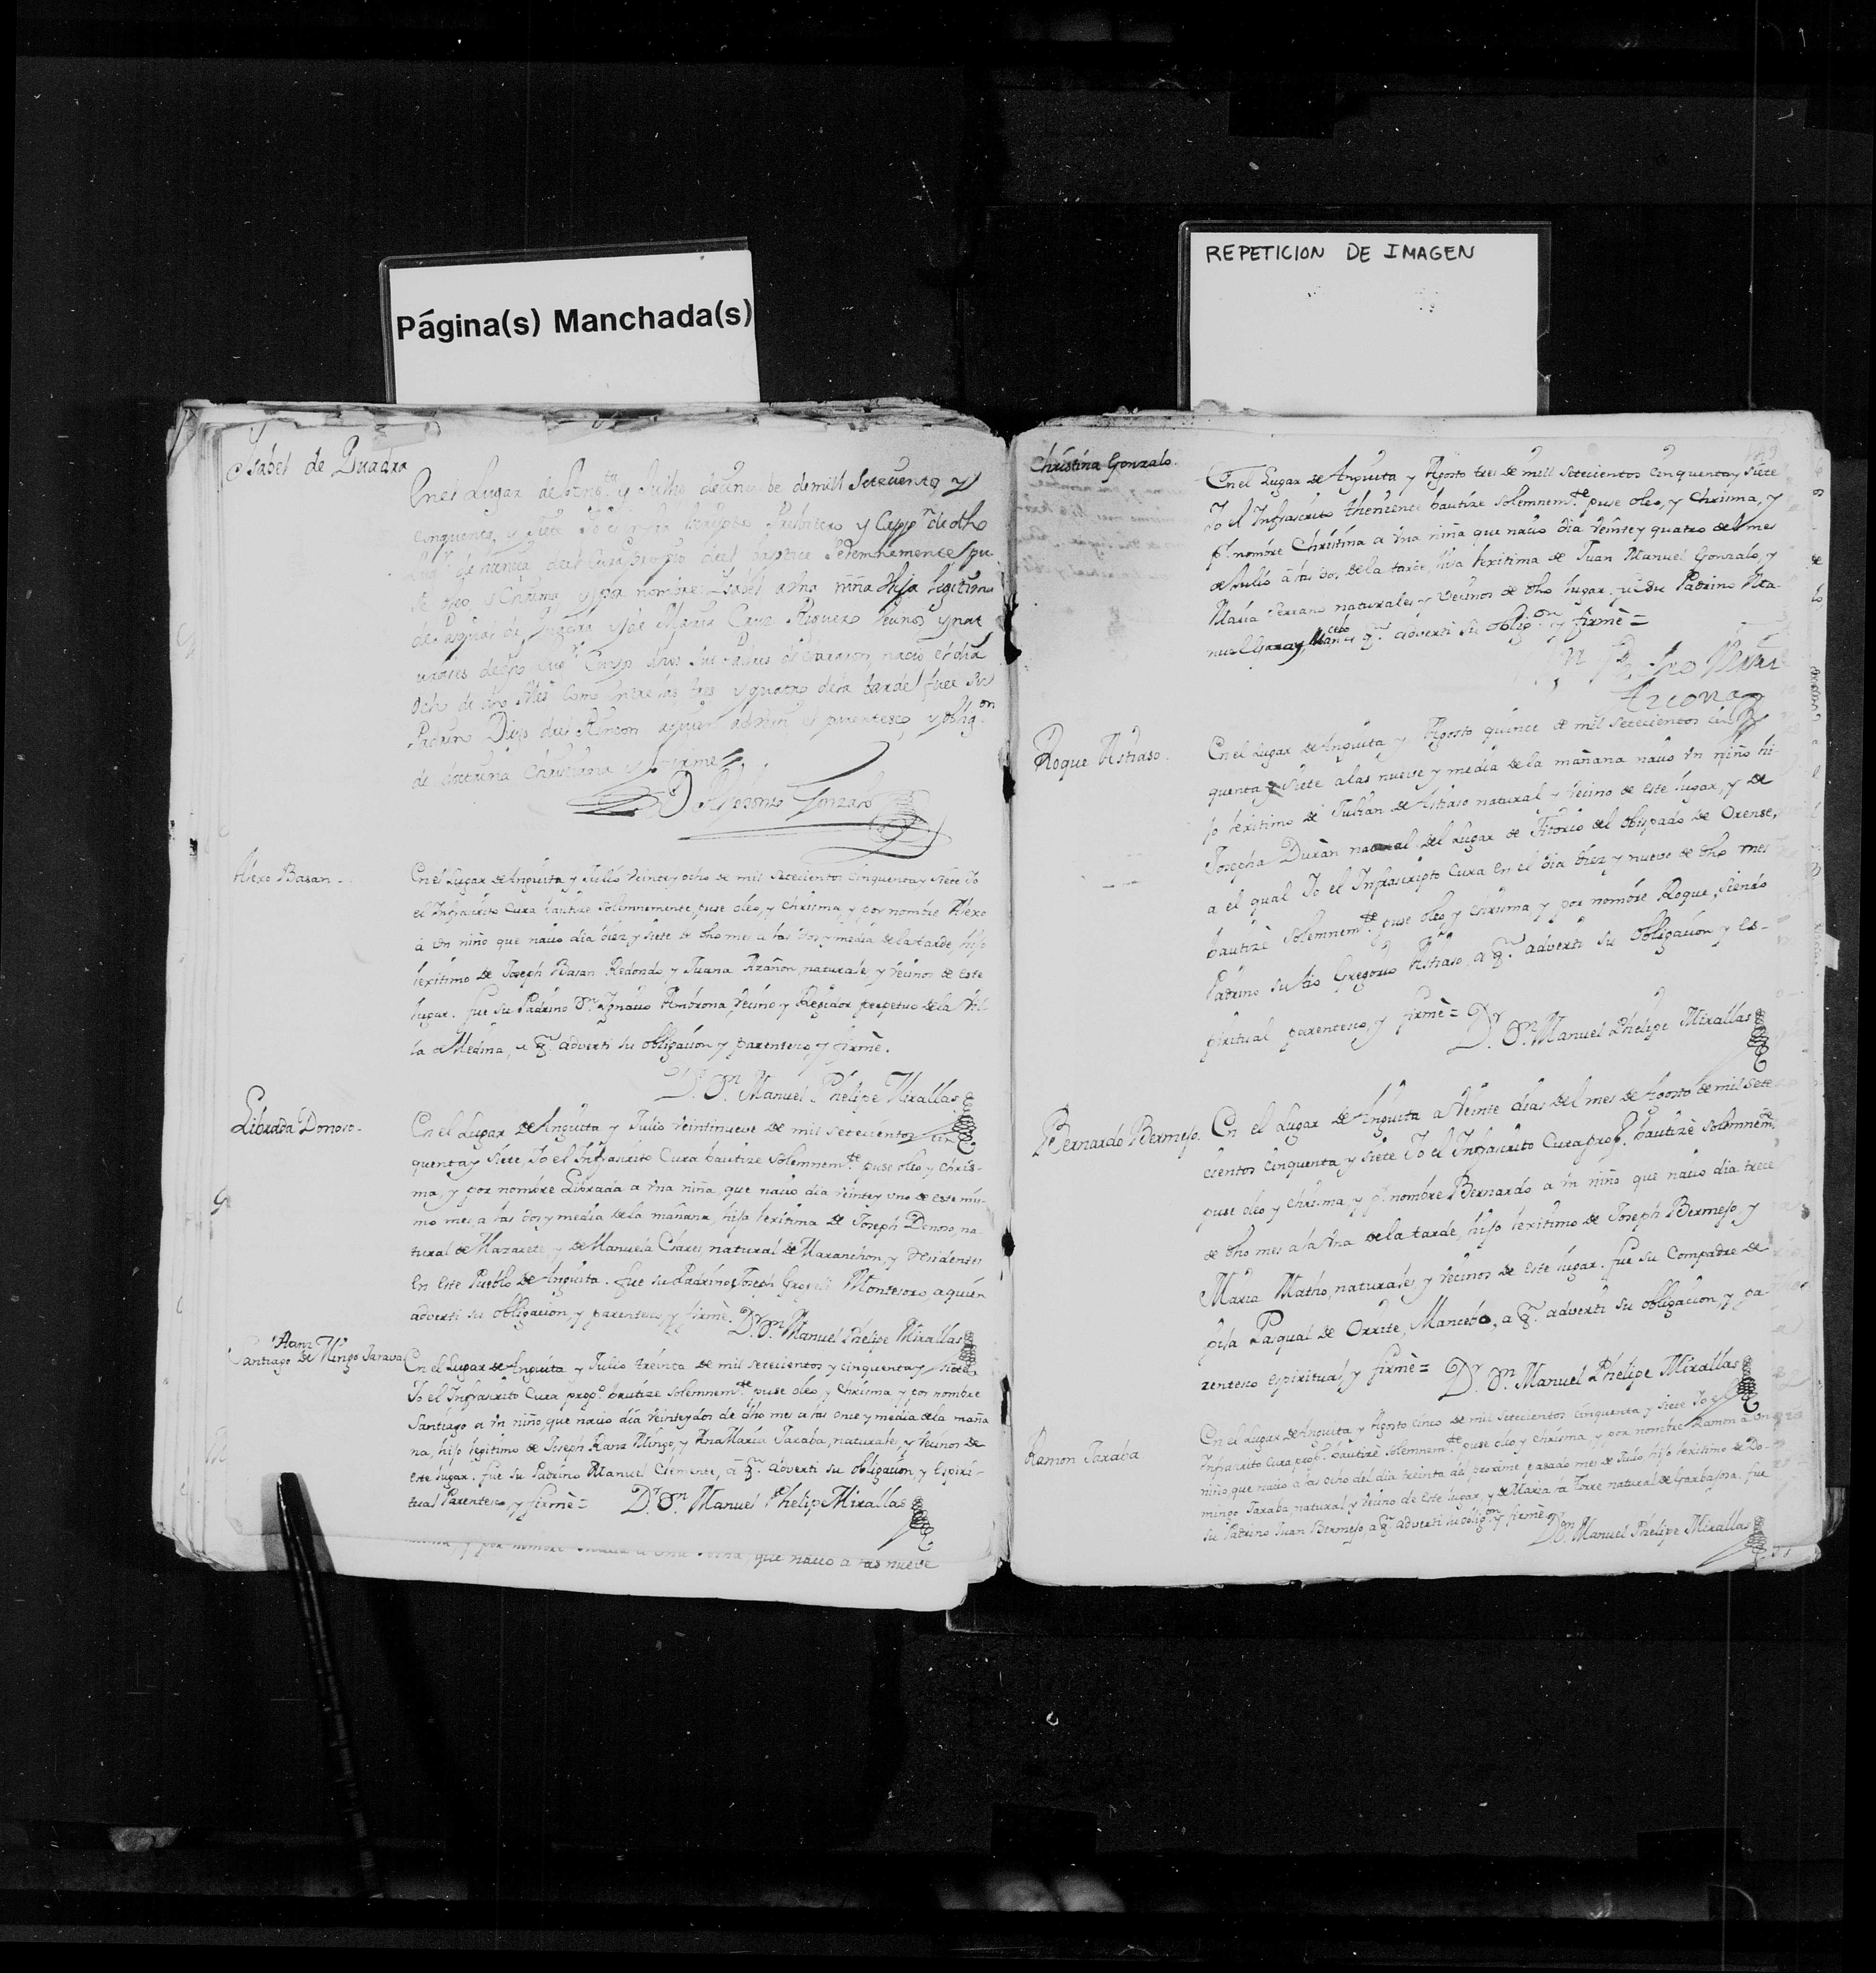 Página(s) Manchada(s)
REPETICION DE IMAGEN
Isabel de Quadra
En el Lugar de Ang.ta y Julio de mill Setecientos y
cinquenta y siete Yo el Presbitero y Capp.n de dho
del Cura propio del bautice Solemnemente pu
se oleo, y Chrisma y por nombre Isabel a una niña Hija legitima
de y de Maria Cruz Reguero Vecinos y nat
urales de dho nacio el dia
ocho de dho Mes como entre las tres y quatro de la tarde fuee su
Padrino Diego del Rincon aquien adverti el parentesco, y oblig.on
de doctrina Christiana y firme
D Ildefonso Gonzalo
Alexo Basan
En el Lugar de Anguita y Julio veinte y ocho de mil setecientos cinquenta y siete Yo
el Infrascrito Cura bautize solemnemente, puse oleo, y chrisma, y por nombre Alexo
à un niño que nacio dia diez y siete de dho mes a las dos y media de la tarde, hijo
lexitimo de Joseph Basan Redondo y Juana Azañon, naturales y vecinos de este
lugar. fue su Padrino Dn. Ignacio Ambrona, Vecino y Regidor perpetuo de la Vil-
la de Medina, a qn. adverti su obligacion y parentesco, y firmè.
Dr. Dn. Manuel Phelipe Mirallas
Librada Donoso.
En el Lugar de Anguita y Julio veintinueve de mil setecientos cin
quenta y siete, Yo el Infrascrito Cura bautize solemnem.te puse oleo y chris-
ma, y por nombre Librada a una niña, que nacio dia veinte y uno de este mis-
mo mes, a las dos y media de la mañana, hija lexitima de Joseph Donoso, na-
tural de Mazarete, y de Manuela Clares, natural de Maranchon, y residentes
en este Pueblo de Anguita. fue su Padrino Joseph Montesoro, a quien
adverti su obligacion, y parentesco, y firmè. Dr. Dn. Manuel Phelipe Mirallas
Ranz
Santiago de Mingo Tarava
En el Lugar de Anguita y Julio treinta de mil setecientos y cinquenta y siete
Yo el Infrascrito Cura prop.o bautize solemnem.te puse oleo, y chrisma y por nombre
Santiago a un niño, que nacio dia veinte y dos de dho mes a las once y media de la maña
na, hijo legitimo de Joseph Ranz Mingo, y Ana Maria Taraba, naturales, y vecinos de
este lugar. fue su Padrino Manuel Clemente, à qn. adverti su obligacion, y Espiri-
tual Parentesco, y firmè = Dr. Dn. Manuel Phelipe Mirallas
y por nombre que nacio a las nueve
Christina Gonzalo.
En el Lugar de Anguita y Agosto tres de mill setecientos cinquenta y siete
Yo el Infrascrito theniente bautize solemnem.te puse oleo, y Chrisma, y
pr. nombre Christina a una niña que nacio dia veinte y quatro del mes
de Julio à las dos de la tarde, hija lexitima de Juan Manuel Gonzalo, y
Maria Serrano naturales y vecinos de dho lugar, fue su Padrino Ma-
nuel Garay, Mancebo qn. adverti su oblig.on y firmè =
Arcona
Roque Astraso.
En el Lugar de Anguita y Agosto quince de mil setecientos cin
quenta y siete a las nueve y media de la mañana nacio un niño hi-
jo lexitimo de Julian de Astraso natural y vecino de este lugar, y de
Josepha Duràn natural del Lugar de Fitorio del obispado de Orense,
a el qual Yo el Infrascripto Cura en el dia diez y nueve de dho mes
bautizè solemnem.te puse oleo, y chrisma y por nombre Roque, siendo
Padrino su tio Gregorio Astraso, a qn. adverti su obligacion y es-
piritual parentesco, y firmè = Dr. Dn. Manuel Phelipe Mirallas
Bernardo Bermejo.
En el Lugar de Anguita a veinte dias del mes de Agosto de mil sete
cientos cinquenta y siete Yo el Infrascrito Cura prop.o bautizè solemnem.te
puse oleo y chrisma, y pr. nombre Bernardo a un niño que nacio dia trece
de dho mes a la una de la tarde, hijo lexitimo de Joseph Bermejo, y
Maria Matho, naturales, y vecinos de este lugar. fue su Compadre de
pila Pasqual de Orrite, Mancebo, a qn. adverti su obligacion, y pa-
rentesco espiritual, y firmè = Dr. Dn. Manuel Phelipe Mirallas
Ramon Taraba
En el Lugar de Anguita y Agosto cinco de mil setecientos cinquenta y siete Yo el
Infrascrito Cura prop.o bautizè solemnem.te puse oleo y chrisma, y por nombre Ramon à un
niño que nacio à las ocho del dia treinta del proximo pasado mes de Julio hijo lexitimo de Do-
mingo Taraba, natural y vecino de este lugar, y de Maria la Torre natural de Garbajosa. fue
su Padrino Juan Bermejo, a qn. adverti su oblig.on y firmè =
Dr. Dn. Manuel Phelipe Mirallas